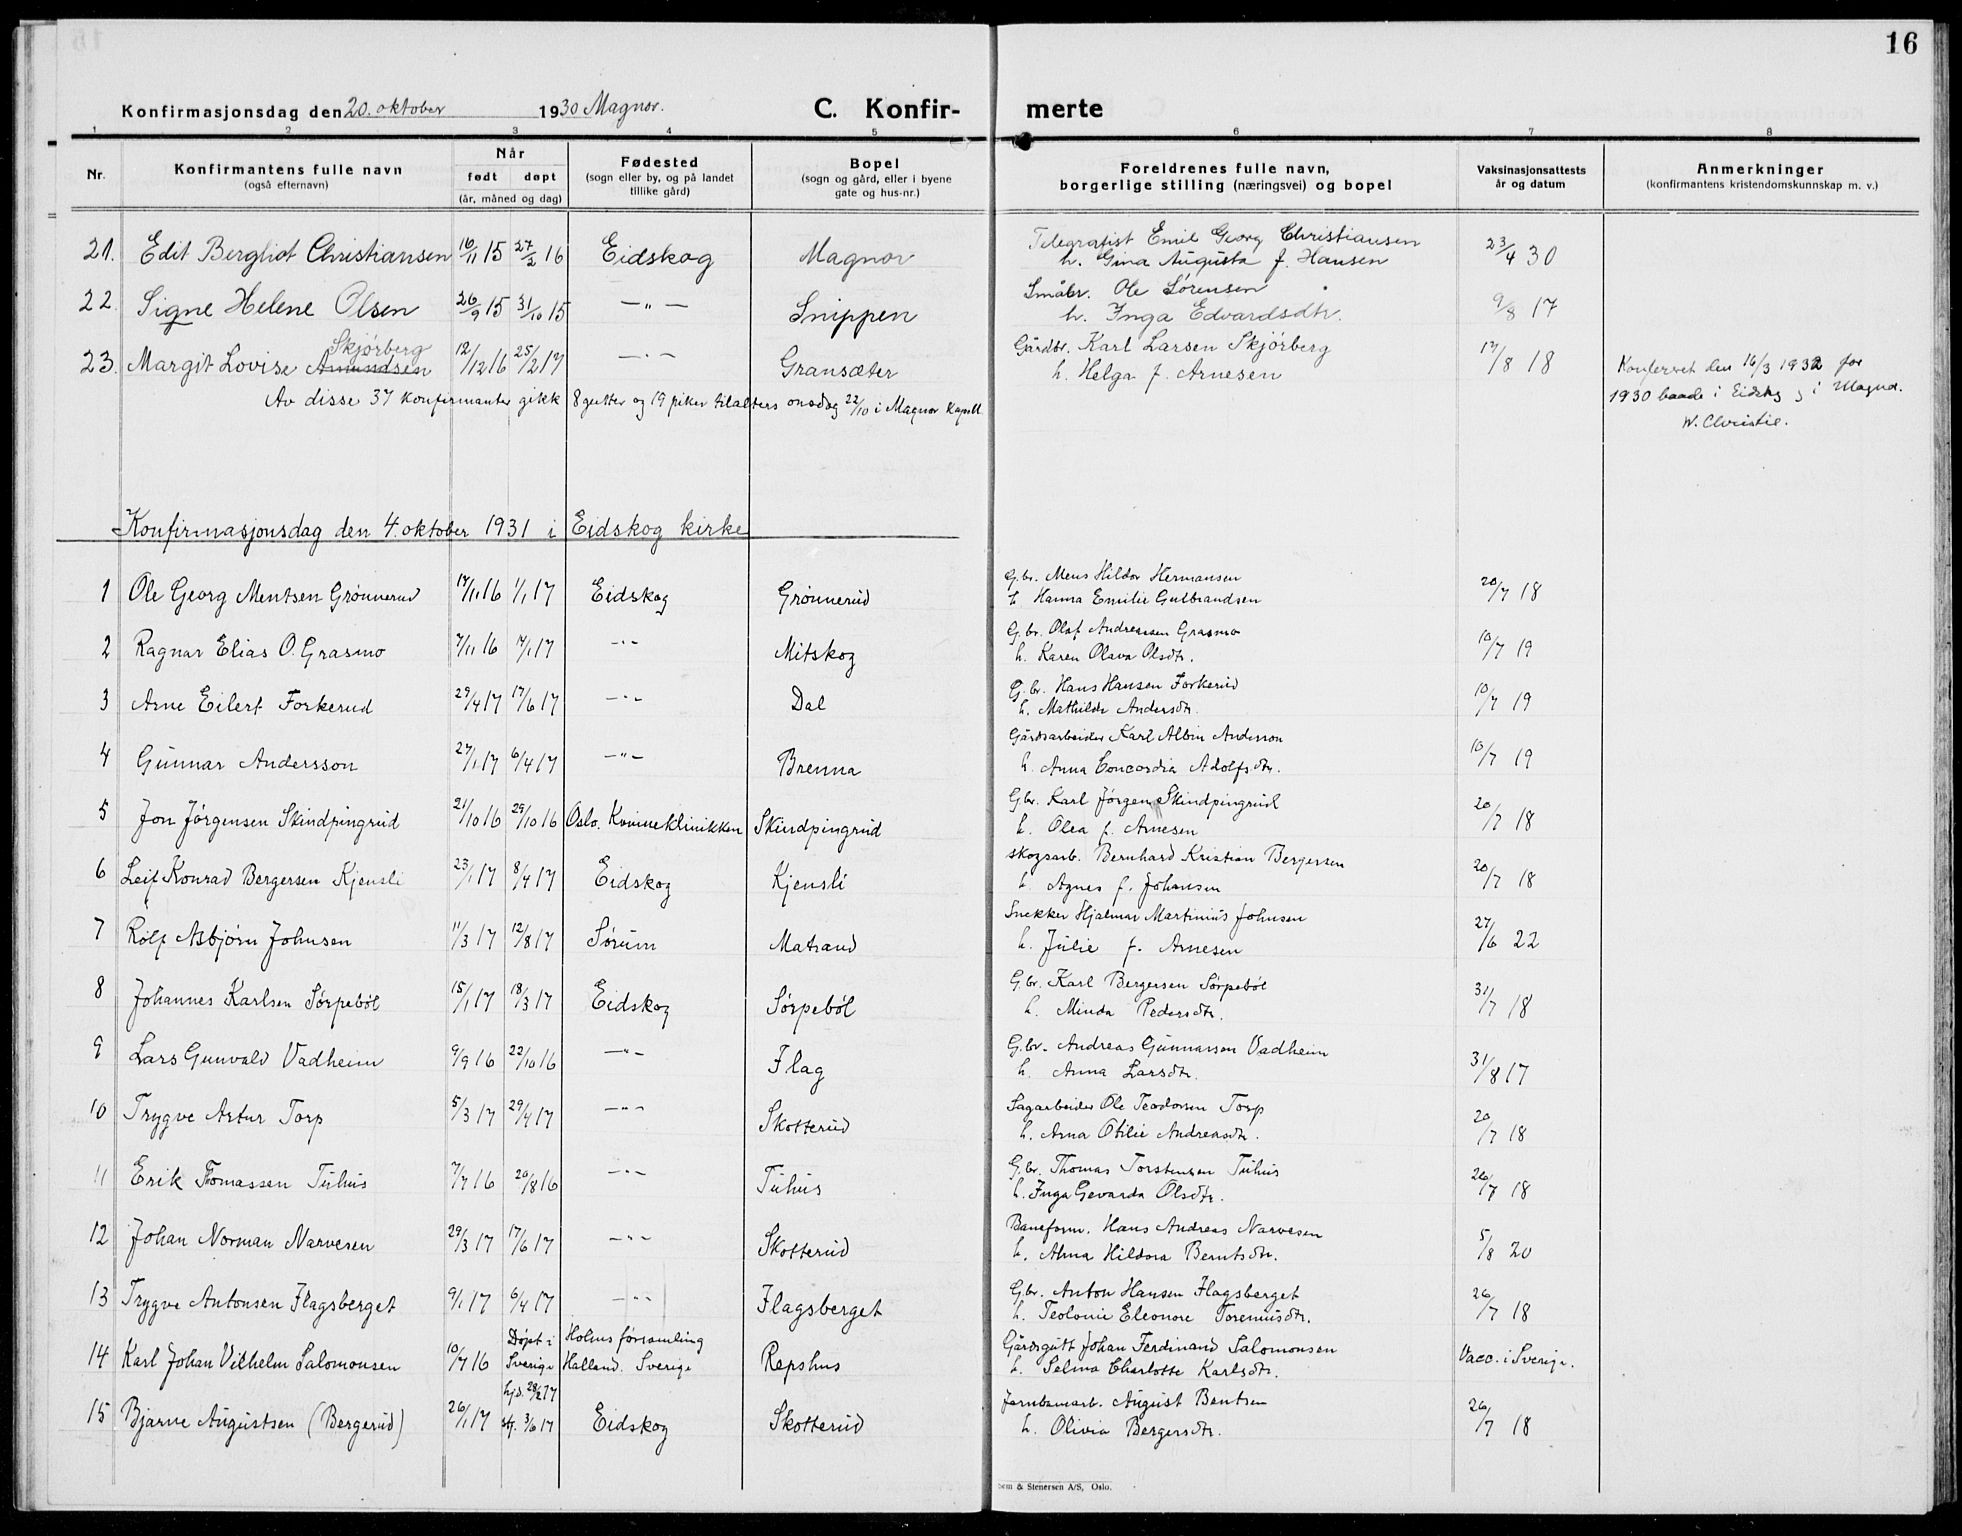 16
Konfirmasjonsdag den 20. oktober 1930 Magnor. C. Konfir- merte
1 2 3 4 5 6 7 8
Nr. Konfirmantens fulle navn (også efternavn) Når født døpt (år, måned og dag) Fødested (sogn eller by, og på landet tillike gård) Bopel (sogn og gård, eller i byene gate og hus-nr.) Foreldrenes fulle navn, borgerlige stilling (næringsvei) og bopel Vaksinasjonsattests år og datum Anmerkninger (konfirmantens kristendomskunnskap m. v.)
21. Edit Bergliot Christiansen 16/11 15 27/2 16 Eidskog Magnor Telegrafist Emil Georg Christiansen 23/4 30
h. Gina Augusta f. Hansen
22. Signe Helene Olsen 26/9 15 31/10 15 —"— Snippen Småbr. Ole Sørensen 9/8 17
h. Inga Edvardsdtr.
Skjørberg
23. Margit Lovise Amundsen 12/12 16 25/2 17 —"— Gransæter Gårdbr. Karl Larsen Skjørberg 17/8 18
h. Helga f. Arnesen
Konferert den 16/3 1932 for
1930 baade i Eidskog i Magnor.
W. Christie.
Av disse 37 konfirmanter gikk 8 gutter og 19 piker til alters onsdag 22/10 i Magnor kapell
Konfirmasjonsdag den 4. oktober 1931 i Eidskog kirke
1 Ole Georg Mentsen Grønnerud 17/11 16 1/1 17 Eidskog Grønnerud G.br. Mens Hildor Hermansen 20/7 18
h. Hanna Emilie Gulbrandsen
2 Ragnar Elias O. Grasmo 7/11 16 17/1 17 —"— Mitskog G.br. Olaf Andreassen Grasmo 10/7 19
h. Karen Olava Olsdtr.
3 Arne Eilert Forkerud 29/4 17 17/6 17 —"— Dal G.br. Hans Hansen Forkerud 10/7 19
h. Mathilde Andersdtr.
4 Gunnar Andersson 27/1 17 6/4 17 —"— Brenna Gårdsarbeider Karl Albin Andersson 10/7 19
h. Anna Concordia Adolfsdtr.
5 Jon Jørgensen Skindpingrud 21/10 16 29/10 16 Oslo. Kvinneklinikken Skindpingrud Gbr. Karl Jørgen Skindpingrud 20/7 18
h. Olea f. Arnesen
6 Leif Konrad Bergersen Kjensli 23/1 17 8/4 17 Eidskog Kjensli Skogsarb. Bernhard Kristian Bergersen 20/7 18
h. Agnes f. Johansen
7 Rolf Asbjørn Johnsen 11/3 17 12/8 17 Sørum Matrand Snekker Hjalmar Martinius Johnsen 27/6 22
h. Julie f. Arnesen
8 Johannes Karlsen Sørpebøl 15/1 17 18/3 17 Eidskog Sørpebøl G.br. Karl Bergersen Sørpebøl 31/7 18
h. Minda Pedersdtr.
9 Lars Gunvald Vadheim 9/9 16 22/10 16 —"— Flag G.br. Andreas Gunnarson Vadheim 31/8 17
h. Anna Larsdtr.
10 Trygve Artur Torp 5/3 17 29/4 17 —"— Skotterud Sagarbeider Ole Teodorsen Torp 20/7 18
h. Arna Otilie Andreasdtr.
11 Erik Thomassen Tuhus 7/7 16 20/8 16 —"— Tuhus G.br. Thomas Torstensen Tuhus 26/7 18
h. Inga Gevarda Olsdtr.
12 Johan Norman Narvesen 29/3 17 17/6 17 —"— Skotterud Baneform. Hans Andreas Narvesen 5/8 20
h. Alma Hildora Berntsdtr.
13 Trygve Antonsen Flagsberget 9/1 17 6/4 17 —"— Flagsberget G.br. Anton Hansen Flagsberget 26/7 18
h. Teolonie Eleonore Toreniusdtr.
14 Karl Johan Vilhelm Salomonsen 10/7 16 Døpt i Sverige Holms församling Halland. Sverige Repshus Gårdsgutt Johan Ferdinand Salomonsen Vacc. i Sverige.
h. Selma Charlotte Karlsdtr.
15 Bjarne Augustsen (Bergerud) 26/1 17 hjd. 28/2 17 stf. 3/6 17 Eidskog Skotterud Jernbanearb. August Bentsen 26/7 18
h. Olivia Bergersdtr.
& Stenersen A/S, Oslo.